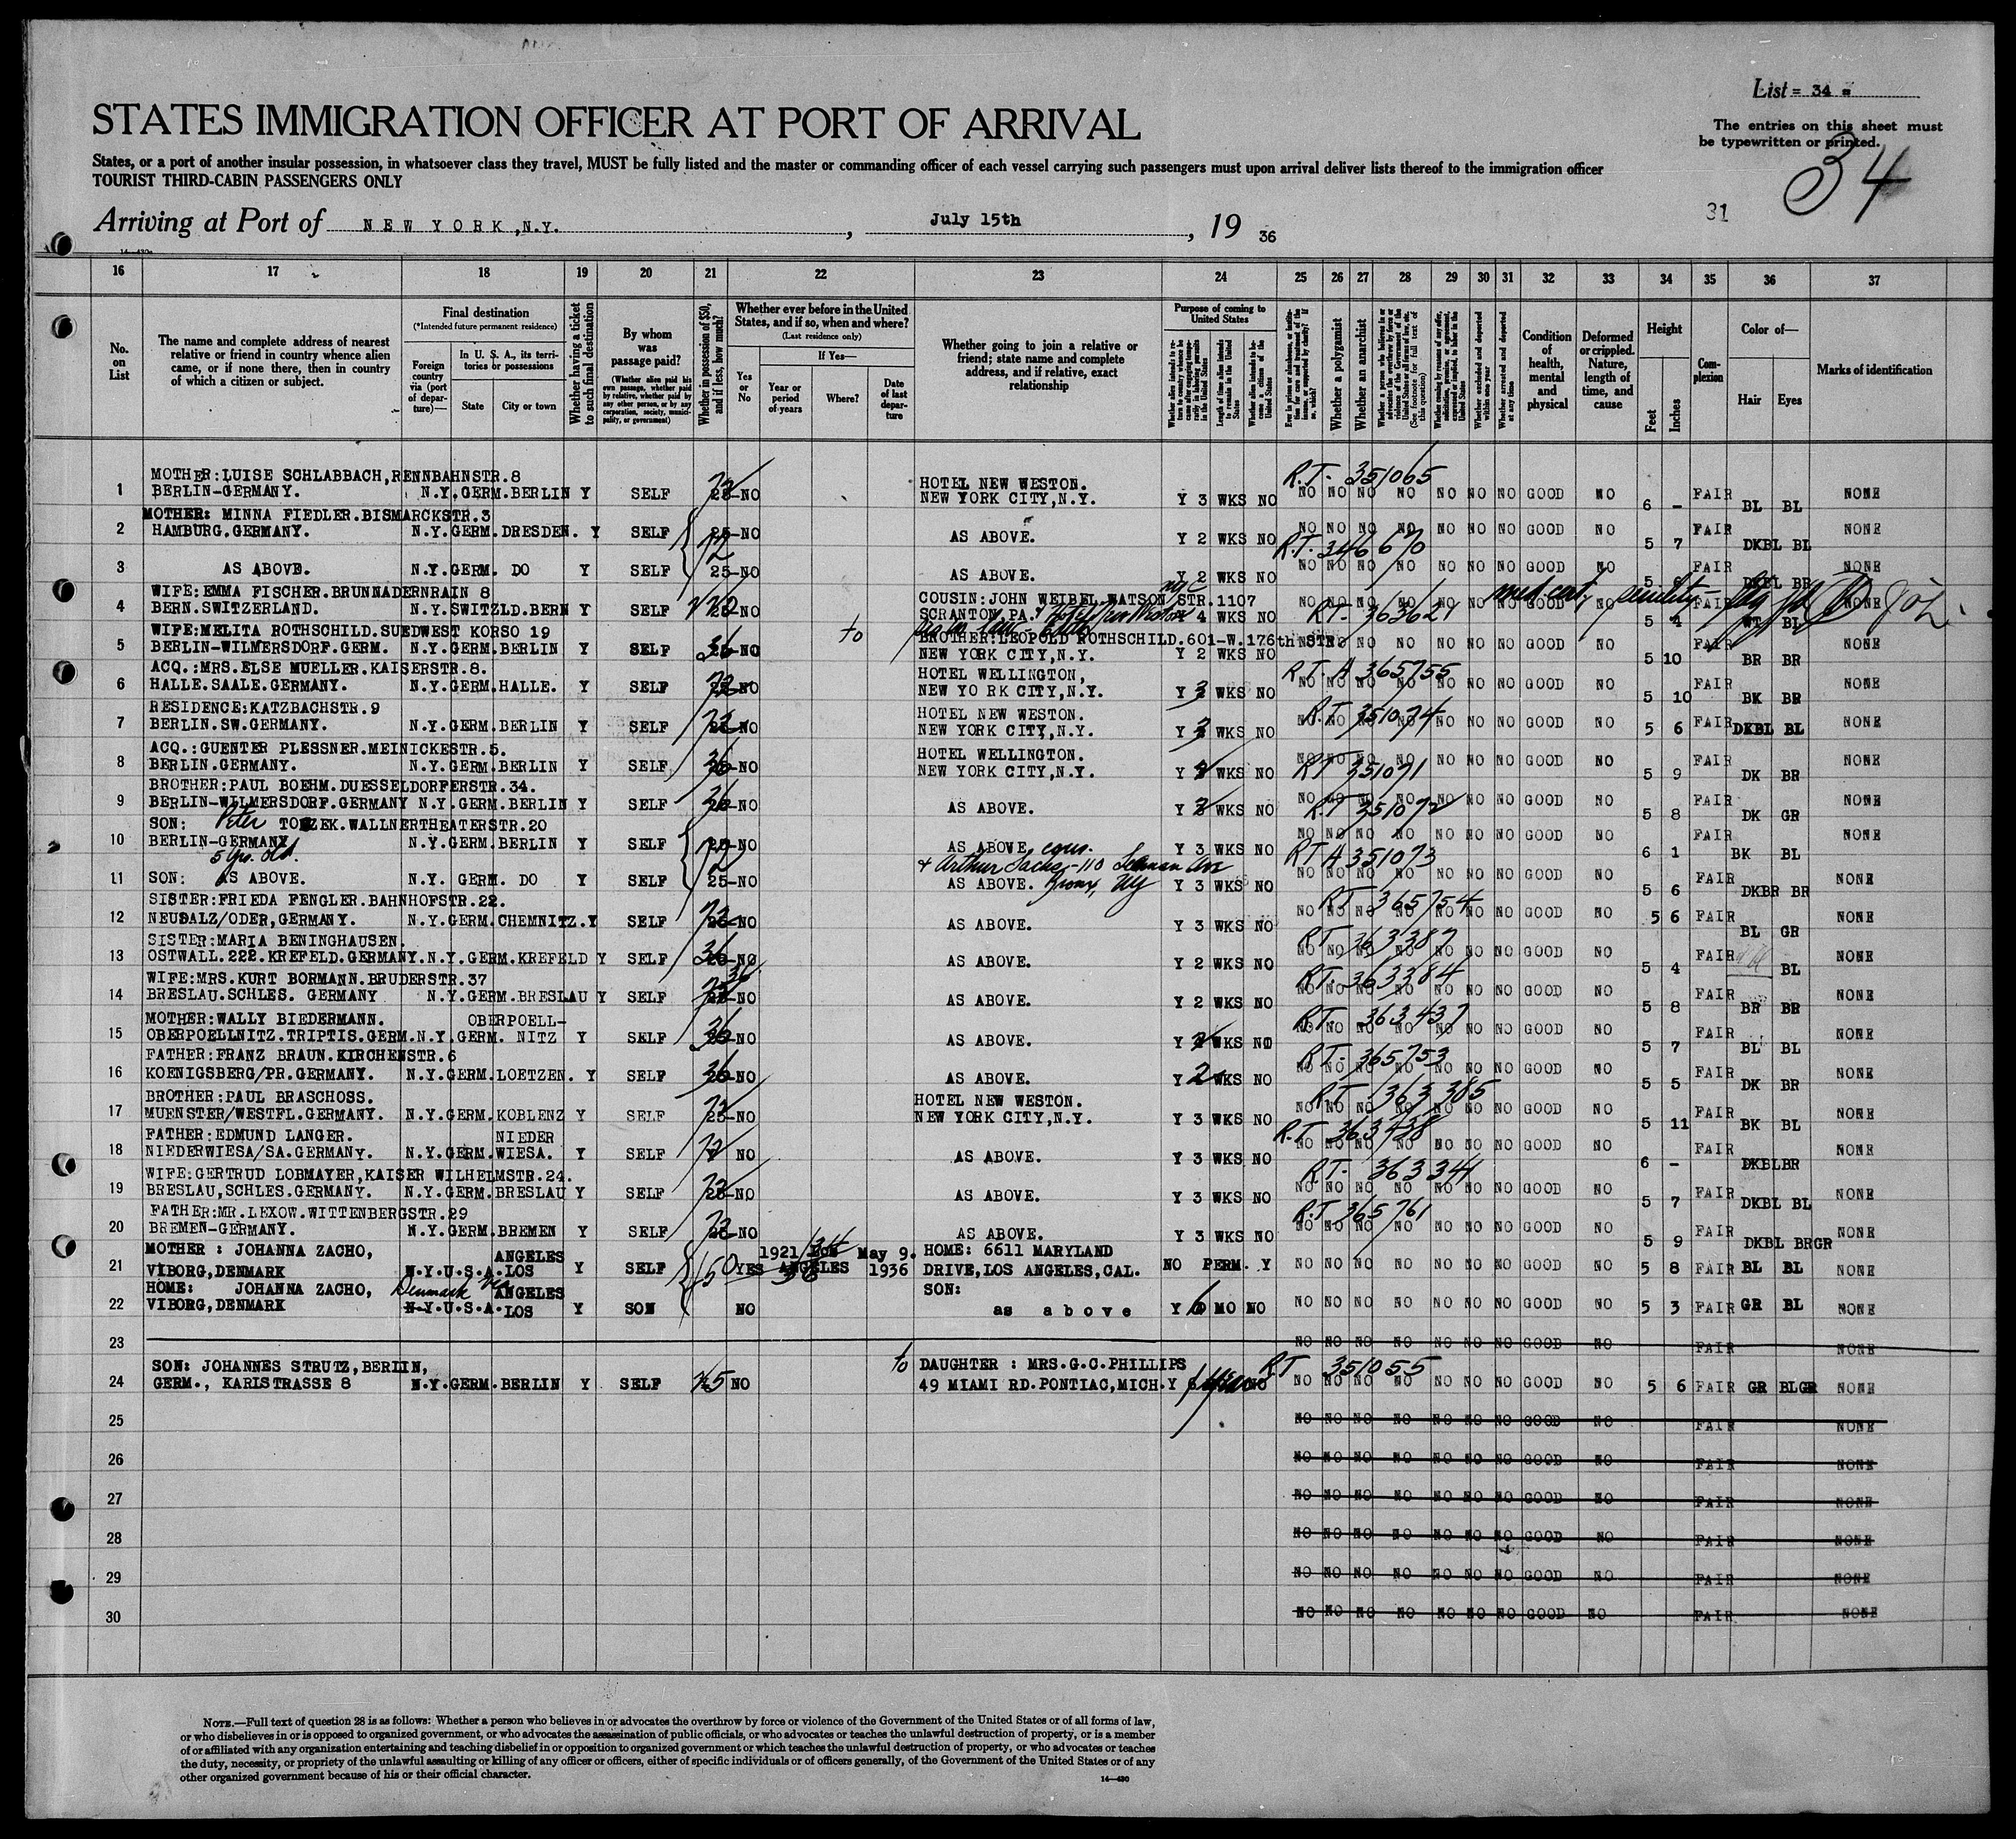 List = 34 =
STATES IMMIGRATION OFFICER AT PORT OF ARRIVAL
The entries on this sheet must
be typewritten or printed.
34
States, or a port of another insular possession, in whatsoever class they travel, MUST be fully listed and the master or commanding officer of each vessel carrying such passengers must upon arrival deliver lists thereof to the immigration officer
TOURIST THIRD-CABIN PASSENGERS ONLY
31
Arriving at Port of NEW YORK, N.Y. , July 15th , 19 36
16 17 18 19 20 21 22 23 24 25 26 27 28 29 30 31 32 33 34 35 36 37
No. on List
The name and complete address of nearest relative or friend in country whence alien came, or if none there, then in country of which a citizen or subject.
Final destination
(*Intended future permanent residence)
Foreign country via (port of departure)—
In U. S. A., its territories or possessions
State City or town
Whether having a ticket to such final destination
By whom was passage paid?
(Whether alien paid his own passage, whether paid by relative, whether paid by any other person, or by any corporation, society, municipality, or government)
Whether in possession of $50, and if less, how much?
Whether ever before in the United States, and if so, when and where?
(Last residence only)
Yes or No
If Yes—
Year or period of years
Where?
Date of last departure
Whether going to join a relative or friend; state name and complete address, and if relative, exact relationship
Purpose of coming to United States
Length of time alien intends to remain in the United States
Whether alien intends to become a citizen of the United States
Whether a polygamist
Whether an anarchist
Whether excluded and deported within one year
Whether arrested and deported at any time
Condition of health, mental and physical
Deformed or crippled. Nature, length of time, and cause
Height
Feet Inches
Complexion
Color of—
Hair Eyes
Marks of identification
MOTHER:LUISE SCHLABBACH,RENNBAHNSTR.8 HOTEL NEW WESTON. R.T- 351065
1 BERLIN-GERMANY. N.Y.GERM.BERLIN Y SELF NO NEW YORK CITY,N.Y. Y 3 WKS NO NO NO NO NO NO NO NO GOOD NO 6 - FAIR BL BL NONE
MOTHER: MINNA FIEDLER.BISMARCKSTR.3
2 HAMBURG.GERMANY. N.Y.GERM.DRESDEN. Y SELF 25-NO AS ABOVE. Y 2 WKS NO NO NO NO NO NO NO NO GOOD NO 5 7 FAIR DKBL BL NONE
72 R.T.-346670
3 AS ABOVE. N.Y.GERM. DO Y SELF 25-NO AS ABOVE. Y 2 WKS NO NO NO NO NO NO NO NO GOOD NO 5 FAIR DKBL BR NONE
WIFE:EMMA FISCHER.BRUNNADERNRAIN 8 COUSIN:JOHN WEIBEL WATSON STR.1107 med cert, senility
4 BERN.SWITZERLAND. N.Y.SWITZLD.BERN Y SELF NO SCRANTON,PA. 4 WKS NO RT- 363621 NO NO NO NO NO NO NO GOOD NO 5 4 FAIR WT BL NONE
WIFE:MELITA ROTHSCHILD.SUEDWEST KORSO 19 to BROTHER:LEOPOLD ROTHSCHILD.601-W.176th STR
5 BERLIN-WILMERSDORF.GERM. N.Y.GERM.BERLIN Y SELF NO NEW YORK CITY,N.Y. Y 2 WKS NO NO NO NO NO NO NO GOOD NO 5 10 FAIR BR BR NONE
ACQ.:MRS.ELSE MUELLER.KAISERSTR.8. HOTEL WELLINGTON, R.T.A 365755
6 HALLE.SAALE.GERMANY. N.Y.GERM.HALLE. Y SELF NO NEW YO RK CITY,N.Y. Y 3 WKS NO NO NO NO NO NO NO NO GOOD NO 5 10 FAIR BK BR NONE
RESIDENCE:KATZBACHSTR.9 HOTEL NEW WESTON. R.T 351074
7 BERLIN.SW.GERMANY. N.Y.GERM.BERLIN Y SELF NO NEW YORK CITY,N.Y. Y 3 WKS NO NO NO NO NO NO NO NO GOOD NO 5 6 FAIR DKBL BL NONE
ACQ.:GUENTER PLESSNER.MEINICKESTR.5. HOTEL WELLINGTON.
8 BERLIN.GERMANY. N.Y.GERM.BERLIN Y SELF 36 NO NEW YORK CITY,N.Y. Y 2 WKS NO RT 351071 NO NO NO NO NO NO NO GOOD NO 5 9 FAIR DK BR NONE
BROTHER:PAUL BOEHM.DUESSELDORFERSTR.34.
9 BERLIN-WILMERSDORF.GERMANY N.Y.GERM.BERLIN Y SELF 36 NO AS ABOVE. Y 2 WKS NO R.T 351072 NO NO NO NO NO NO NO GOOD NO 5 8 FAIR DK GR NONE
SON: Peter TOCZEK.WALLNERTHEATERSTR.20
10 BERLIN-GERMANY N.Y.GERM.BERLIN Y SELF 25-NO AS ABOVE. Y 3 WKS NO NO NO NO NO NO NO NO GOOD NO 6 1 FAIR BK BL NONE
5 yrs. old. 72 + Arthur Sachs-110 Ave RTA 351073
11 SON: AS ABOVE. N.Y. GERM. DO Y SELF 25-NO AS ABOVE. Bronx, NY Y 3 WKS NO NO NO NO NO NO NO NO GOOD NO 5 6 FAIR DKBR BR NONE
SISTER:FRIEDA FENGLER.BAHNHOFSTR.22. RT 365754
12 NEUSALZ/ODER,GERMANY. N.Y.GERM.CHEMNITZ.Y SELF NO AS ABOVE. Y 3 WKS NO NO NO NO NO NO NO NO GOOD NO 5 6 FAIR BL GR NONE
SISTER:MARIA BENINGHAUSEN. RT 363387
13 OSTWALL.222.KREFELD.GERMANY.N.Y.GERM.KREFELD Y SELF 36 NO AS ABOVE. Y 2 WKS NO NO NO NO NO NO NO NO GOOD NO 5 4 FAIR BL NONE
WIFE:MRS.KURT BORMANN.BRUDERSTR.37 36 RT. 363384
14 BRESLAU.SCHLES. GERMANY N.Y.GERM.BRESLAU Y SELF NO AS ABOVE. Y 2 WKS NO NO NO NO NO NO NO NO GOOD NO 5 8 FAIR BR BR NONE
MOTHER:WALLY BIEDERMANN. OBERPOELL- RT. 363437
15 OBERPOELLNITZ.TRIPTIS.GERM.N.Y.GERM. NITZ Y SELF 36 NO AS ABOVE. Y 2 WKS NO NO NO NO NO NO NO NO GOOD NO 5 7 FAIR BL BL NONE
FATHER:FRANZ BRAUN.KIRCHENSTR.6 RT- 365753
16 KOENIGSBERG/PR.GERMANY. N.Y.GERM.LOETZEN. Y SELF 36 NO AS ABOVE. Y 2 WKS NO NO NO NO NO NO NO NO GOOD NO 5 5 FAIR DK BR NONE
BROTHER:PAUL BRASCHOSS. HOTEL NEW WESTON. RT 363385
17 MUENSTER/WESTFL.GERMANY. N.Y.GERM.KOBLENZ Y SELF 25-NO NEW YORK CITY,N.Y. Y 3 WKS NO NO NO NO NO NO NO NO GOOD NO 5 11 FAIR BK BL NONE
FATHER:EDMUND LANGER. NIEDER R.T 363438
18 NIEDERWIESA/SA.GERMANY. N.Y.GERM.WIESA. Y SELF 72 NO AS ABOVE. Y 3 WKS NO NO NO NO NO NO NO NO GOOD NO 6 - FAIR DKBLBR NONE
WIFE:GERTRUD LOBMAYER,KAISER WILHELMSTR.24. RT- 363344
19 BRESLAU,SCHLES.GERMANY. N.Y.GERM.BRESLAU Y SELF NO AS ABOVE. Y 3 WKS NO NO NO NO NO NO NO NO GOOD NO 5 7 FAIR DKBL BL NONE
FATHER:MR.LEXOW.WITTENBERGSTR.29 R.T 365761
20 BREMEN-GERMANY. N.Y.GERM.BREMEN Y SELF NO AS ABOVE. Y 3 WKS NO NO NO NO NO NO NO NO GOOD NO 5 9 FAIR DKBL BRGR NONE
MOTHER : JOHANNA ZACHO, ANGELES 1921 LOS May 9. HOME: 6611 MARYLAND
21 VIBORG,DENMARK N.Y.U.S.A.LOS Y SELF 150 YES ANGELES 1936 DRIVE,LOS ANGELES,CAL. NO PERM. Y NO NO NO NO NO NO NO GOOD NO 5 8 FAIR BL BL NONE
HOME: JOHANNA ZACHO, Denmark via ANGELES SON:
22 VIBORG,DENMARK N.Y.U.S.A.LOS Y SON NO as above Y 6 MO NO NO NO NO NO NO NO NO GOOD NO 5 3 FAIR GR BL NONE
23 NO NO NO NO NO NO NO GOOD NO FAIR NONE
SON: JOHANNES STRUTZ,BERLIN, to DAUGHTER : MRS.G.C.PHILLIPS RT 351055
24 GERM., KARLSTRASSE 8 N.Y.GERM.BERLIN Y SELF NO 49 MIAMI RD.PONTIAC,MICH.Y NO NO NO NO NO NO NO NO GOOD NO 5 6 FAIR GR BLGR NONE
25 NO NO NO NO NO NO NO GOOD NO FAIR NONE
26 NO NO NO NO NO NO NO GOOD NO FAIR NONE
27 NO NO NO NO NO NO NO GOOD NO FAIR NONE
28 NO NO NO NO NO NO NO GOOD NO FAIR NONE
29 NO NO NO NO NO NO NO GOOD NO FAIR NONE
30 NO NO NO NO NO NO NO GOOD NO FAIR NONE
NOTE.—Full text of question 28 is as follows: Whether a person who believes in or advocates the overthrow by force or violence of the Government of the United States or of all forms of law,
or who disbelieves in or is opposed to organized government, or who advocates the assassination of public officials, or who advocates or teaches the unlawful destruction of property, or is a member
of or affiliated with any organization entertaining and teaching disbelief in or opposition to organized government or which teaches the unlawful destruction of property, or who advocates or teaches
the duty, necessity, or propriety of the unlawful assaulting or killing of any officer or officers, either of specific individuals or of officers generally, of the Government of the United States or of any
other organized government because of his or their official character.
14—430